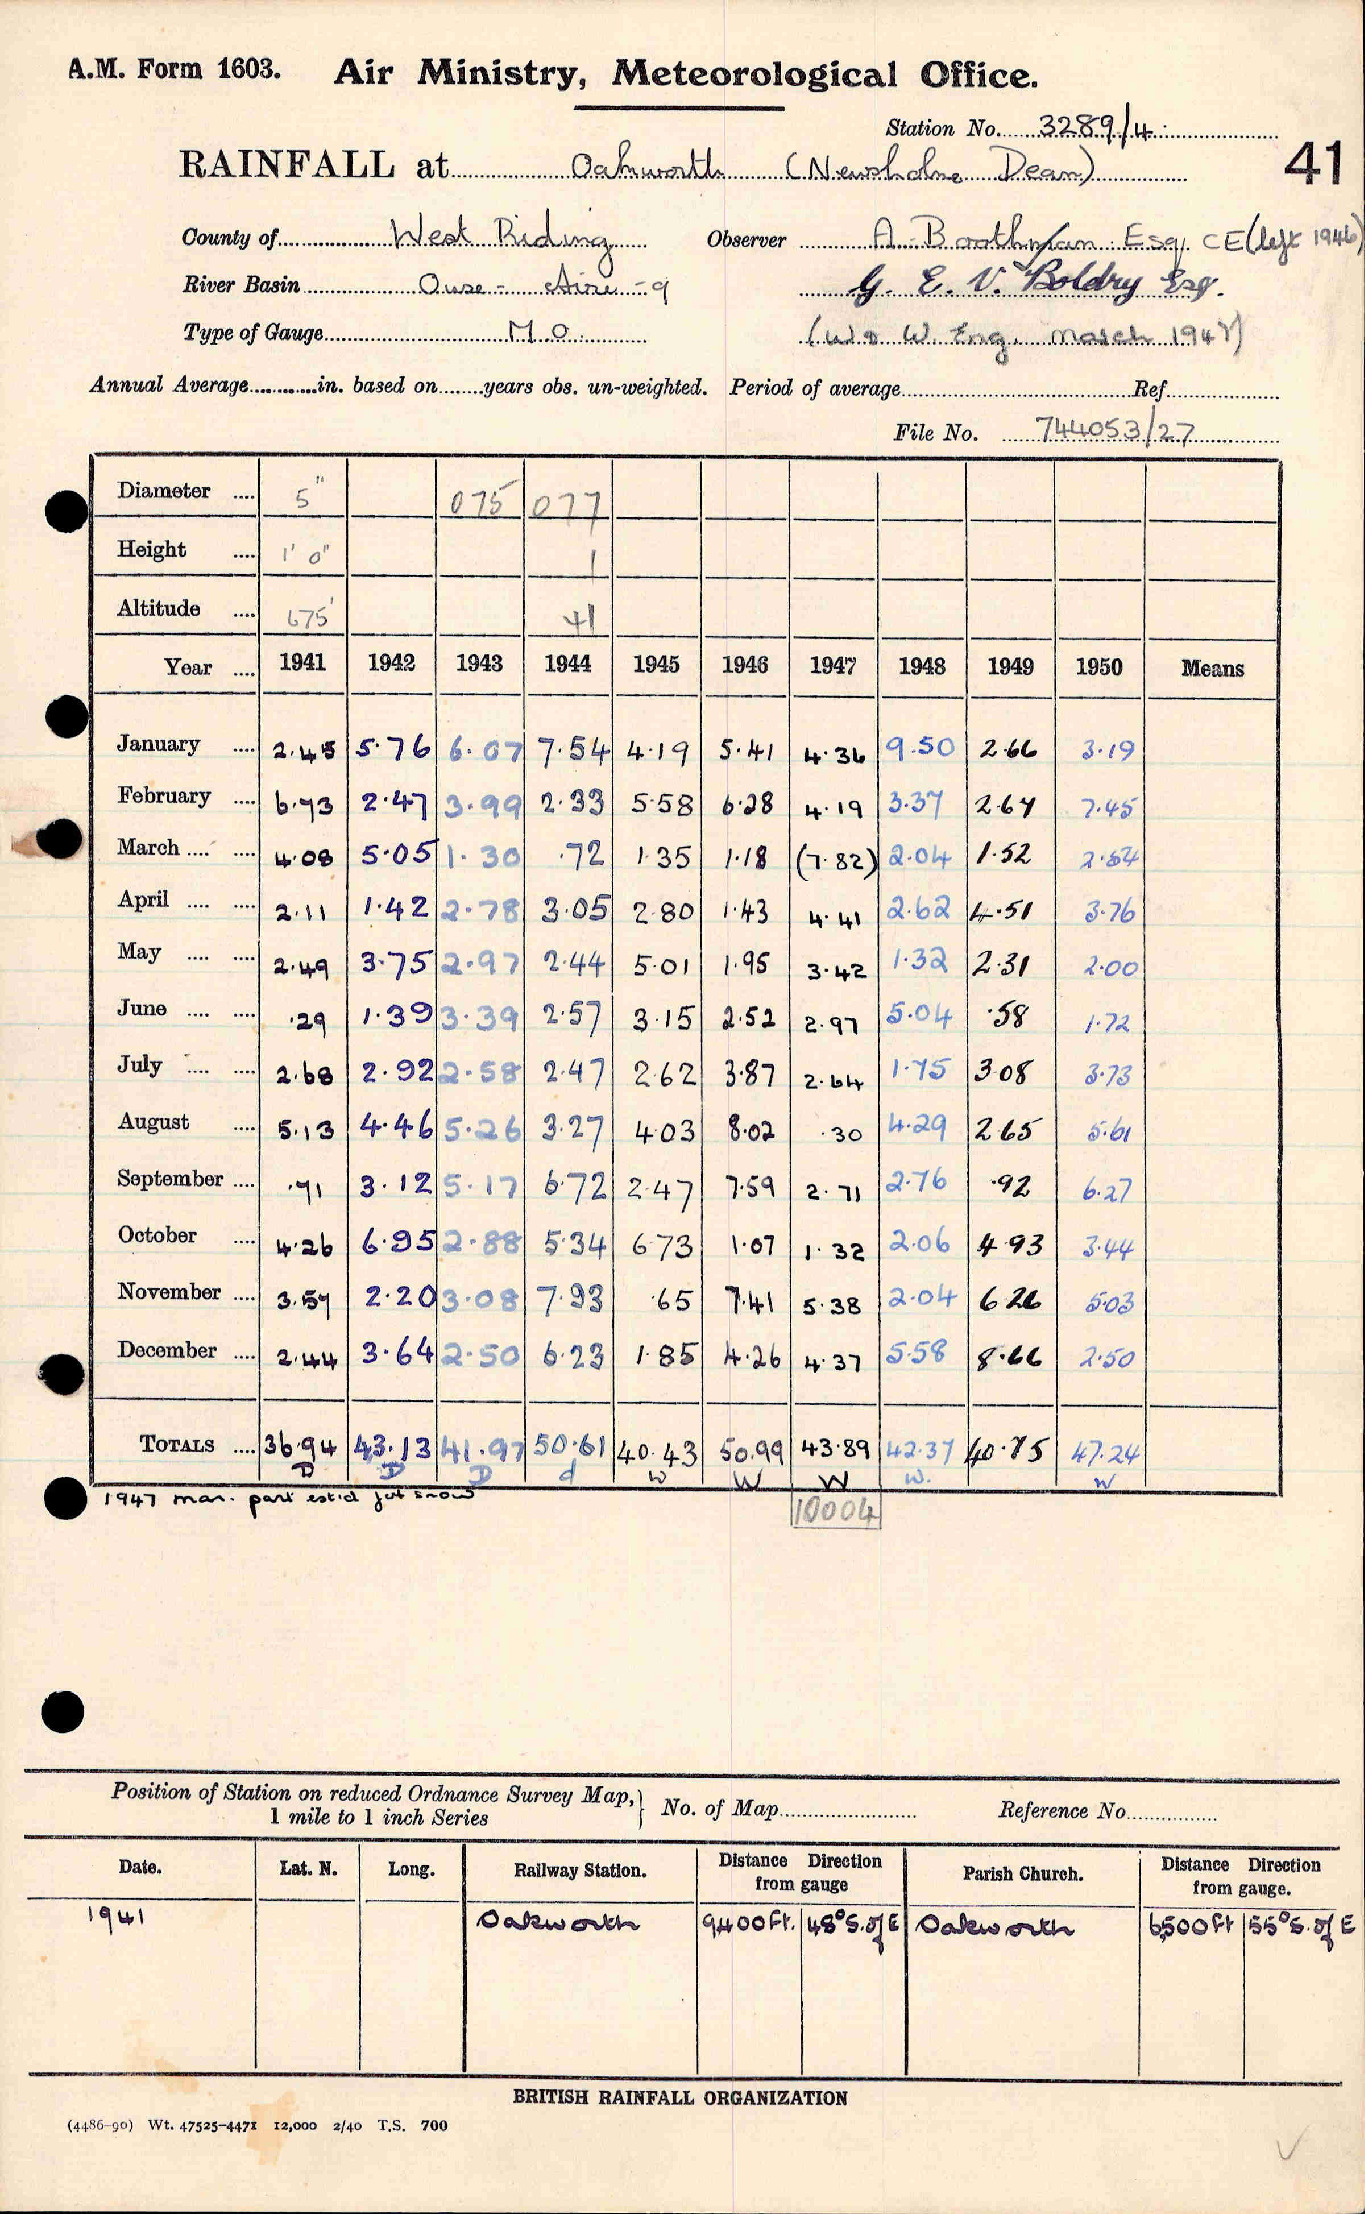 A.M. Form 1603. Air Ministry, Meteorological Office.
Station No. 3289/4
RAINFALL at Oakworth (Newsholme Dean) 41
County of West Riding Observer A. Boothman Esq. CE (left 1946)
River Basin Ouse - Aire - 9 G. E. V. Boldry Esq.
Type of Gauge M.O. (W & W. Eng. March 1947)
Annual Average in. based on years obs. un-weighted. Period of average Ref.
File No. 744053/27
Diameter .... 5" 075 077
Height .... 1' 0" 1
Altitude .... 675' 41
Year .... 1941 1942 1943 1944 1945 1946 1947 1948 1949 1950 Means
January .... 2.45 5.76 6.07 7.54 4.19 5.41 4.36 9.50 2.66 3.19
February .... 6.73 2.47 3.99 2.33 5.58 6.28 4.19 3.37 2.67 7.45
March .... .... 4.08 5.05 1.30 .72 1.35 1.18 (7.82) 2.04 1.52 2.54
April .... .... 2.11 1.42 2.78 3.05 2.80 1.43 4.41 2.62 4.51 3.76
May .... .... 2.49 3.75 2.97 2.44 5.01 1.95 3.42 1.32 2.31 2.00
June .... .... .29 1.39 3.39 2.57 3.15 2.52 2.97 5.04 .58 1.72
July .... .... 2.68 2.92 2.58 2.47 2.62 3.87 2.64 1.75 3.08 3.73
August .... 5.13 4.46 5.26 3.27 4.03 8.02 .30 4.29 2.65 5.61
September .... .71 3.12 5.17 6.72 2.47 7.59 2.71 2.76 .92 6.27
October .... 4.26 6.95 2.88 5.34 6.73 1.07 1.32 2.06 4.93 3.44
November .... 3.57 2.20 3.08 7.93 .65 7.41 5.38 2.04 6.26 5.03
December .... 2.44 3.64 2.50 6.23 1.85 4.26 4.37 5.58 8.66 2.50
TOTALS .... 36.94 43.13 41.97 50.61 40.43 50.99 43.89 42.37 40.75 47.24
D D D d w W W W. w
1947 mar. part est'd for snow
10004
Position of Station on reduced Ordnance Survey Map, 1 mile to 1 inch Series } No. of Map Reference No.
Date. Lat. N. Long. Railway Station. Distance Direction from gauge Parish Church. Distance Direction from gauge.
1941 Oakworth 9,400 Ft. 48° S. of E Oakworth 6,500 Ft 55° S. of E
BRITISH RAINFALL ORGANIZATION
(4486-90) Wt. 47525-4471 12,000 2/40 T.S. 700